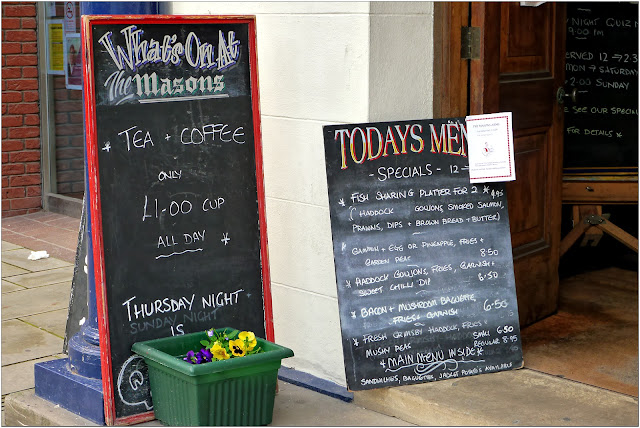 What's On At
The Masons
* TEA + COFFEE
ONLY
£1-00 CUP
ALL DAY *
THURSDAY NIGHT
SUNDAY NIGHT
IS
Q
TODAYS MEN
- SPECIALS - 12
* FISH SHARING PLATTER FOR 2 * 9.95
( HADDOCK GOUJONS, SMOKED SALMON,
PRAWNS, DIPS + BROWN BREAD + BUTTER)
* GAMMON + EGG OR PINEAPPLE, FRIES +
GARDEN PEAS 8.50
* HADDOCK GOUJONS, FRIES, GARNISH +
SWEET CHILLI DIP 8.50
* BACON + MUSHROOM BAGUETTE,
FRIES + GARNISH 6.50
* FRESH GRIMSBY HADDOCK, FRIES +
MUSHY PEAS SMALL 6.50
REGULAR 8.95
*MAIN MENU INSIDE*
SANDWICHES, BAGUETTES, JACKET POTATOES AVAILABLE
NIGHT QUIZ N
9:00 PM
ERVED 12 → 2:3
MON → SATURDAY
→ 2:00 SUNDAY
SEE OUR SPECIALS
FOR DETAILS *